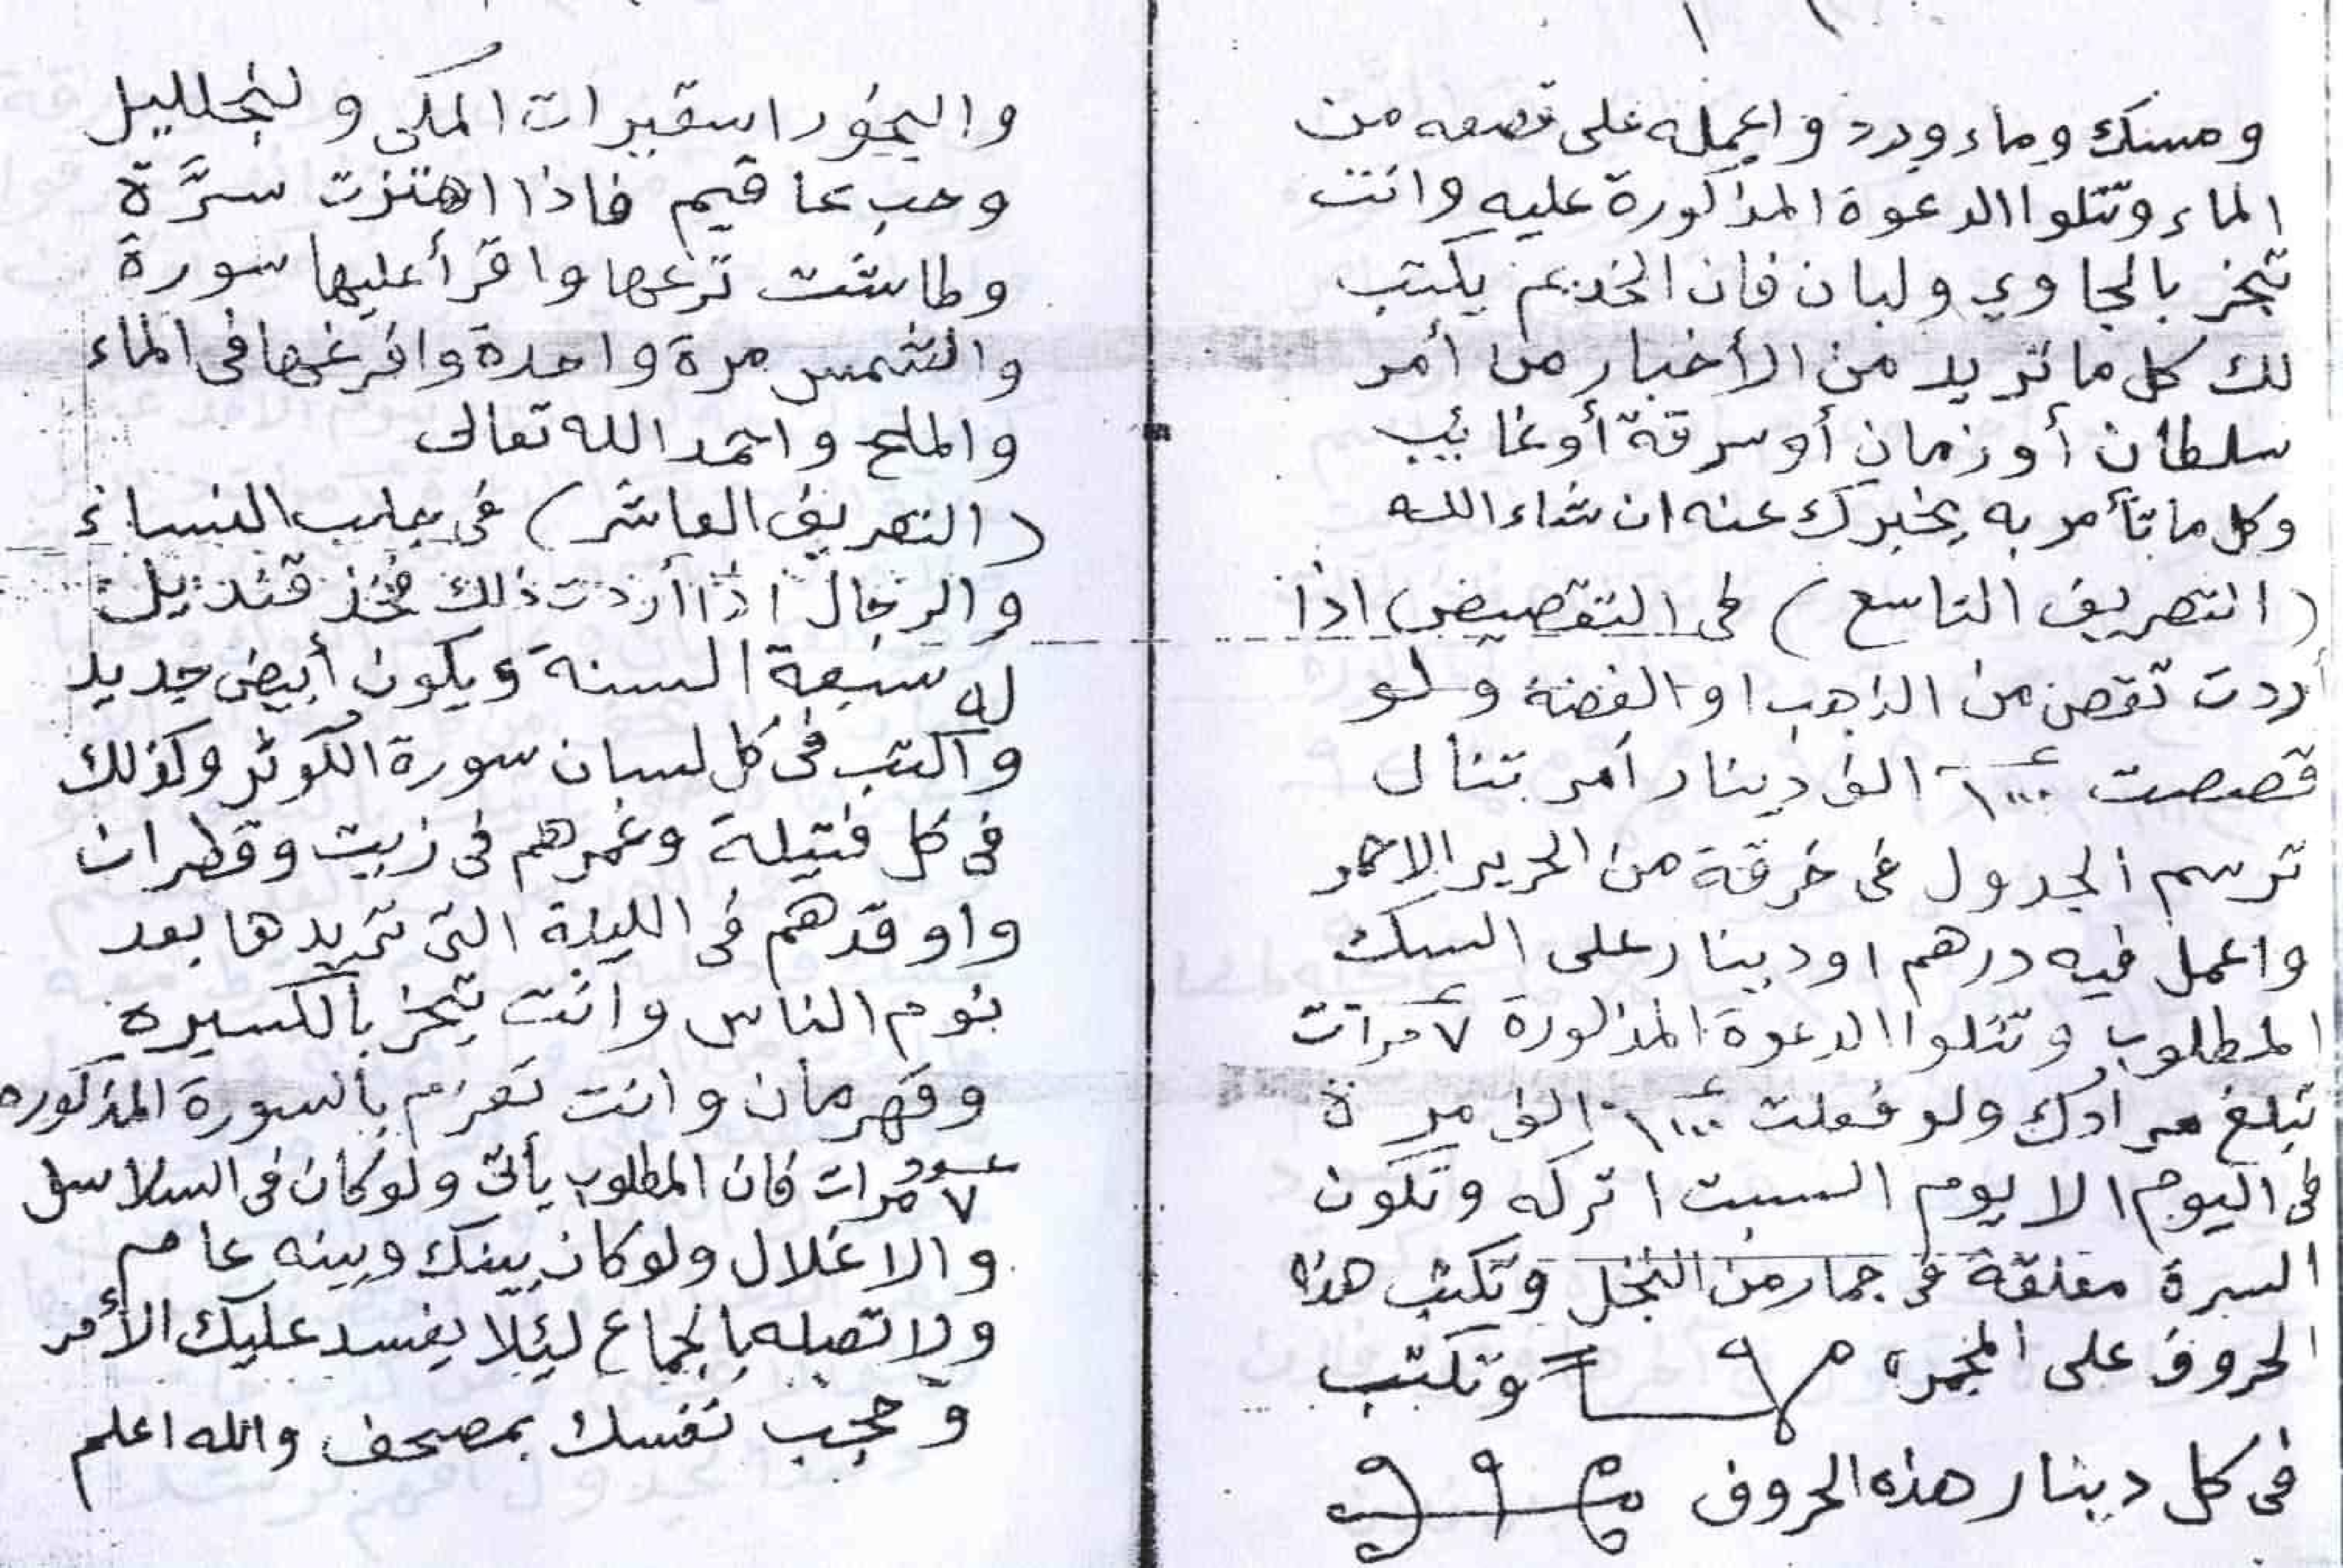 ومسك وماء ورد واعمله على قصعه من
الماء وتتلوا الدعوة المذكورة عليه وانت
تبخر بالجاوي ولبان فان الخديم يكتب
لك كل ما تريد من الأخبار من أمر
سلطان أو زمان أو سرقة أو غائب
وكل ما تأمر به يخبرك عنه ان شاء الله
(التصريف التاسع) في التقصيص اذا
أردت تقص من الذهب او الفضة ولو
قصصت ١٠٠٠ الف دينار أمر تنال
ترسم الجدول في خرقة من الحرير الاحمر
واعمل فيه درهم او دينار على السك
المطلوب وتتلوا الدعوة المذكورة ٧ مرات
تبلغ مرادك ولو فعلت ١٠٠٠ الف مرة
في اليوم الا يوم السبت اتركه وتكون
السرة معلقة في جمار من النخل وتكتب هذه
الحروف على المجمره وتكتب
في كل دينار هذه الحروف
والبخور المكي
وحب فاذا اهتزت سرَّة
وطاشت واقرأ عليها سورة
والشمس مرة واحدة وافرغها في الماء
والملح واحمد الله تعالى
(التصريف العاشر) في جلب النساء
والرجال اذا أردت ذلك فخذ قنديل
له سبعة السنة ويكون أبيض جديد
واكتب في كل لسان سورة الكوثر وكذلك
في كل فتيلة وغمرهم في زيت وقطران
واوقدهم في الليلة التي تريدها بعد
نوم الناس وانت تبخر بالكسبرة
وقهرمان وانت تعزم بالسورة المذكوره
٧ مرات فان المطلوب يأتي ولو كان في السلاسل
والاغلال ولو كان بينك وبينه عام
ولا تصله بالجماع ليئلا يفسد عليك الأمر
وحجب نفسك بمصحف والله اعلم